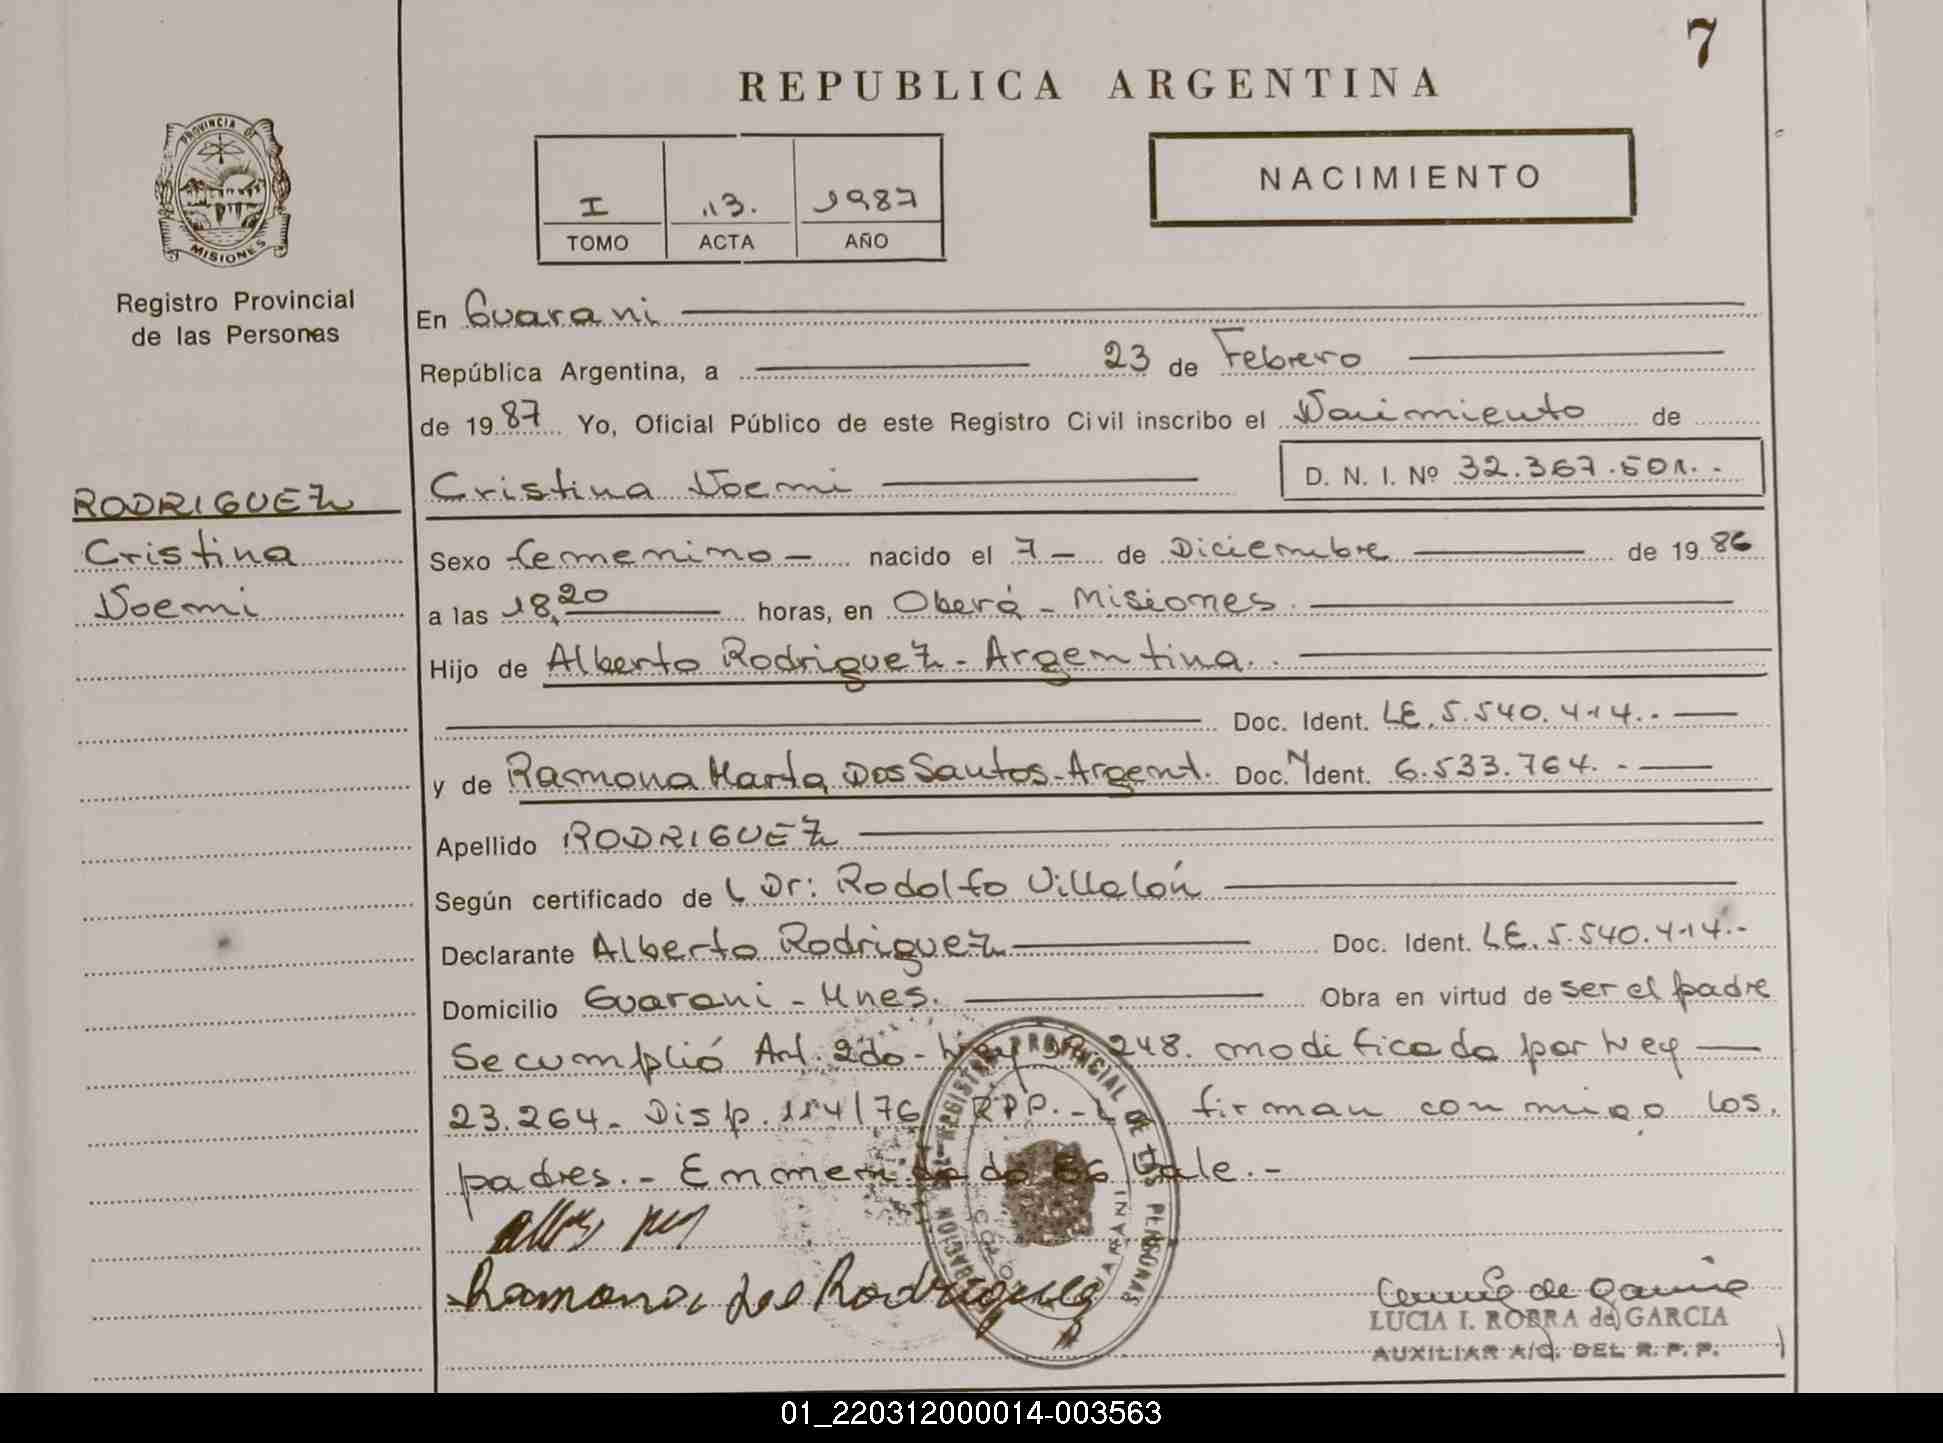 7
REPUBLICA ARGENTINA
PROVINCIA DE
MISIONES
Registro Provincial
de las Personas
I 13. 1987
TOMO ACTA AÑO
NACIMIENTO
En Guarani
República Argentina, a 23 de Febrero
de 1987 Yo, Oficial Público de este Registro Civil inscribo el Nacimiento de
Cristina Noemi D. N. I. Nº 32.367.501.-
RODRIGUEZ
Cristina
Noemi
Sexo femenino - nacido el 7 - de Diciembre de 1986
a las 18,20 horas, en Oberá - Misiones.
Hijo de Alberto Rodriguez - Argentina.
Doc. Ident. LE. 5.540.414.-
y de Ramona Marta Dos Santos - Argent. Doc. Ident. 6.533.764.-
Apellido RODRIGUEZ
Según certificado de L Dr: Rodolfo Villalón
Declarante Alberto Rodriguez Doc. Ident. LE. 5.540.414.-
Domicilio Guarani - Mnes. Obra en virtud de ser el padre
Se cumplió Art. 2do - Ley 18.248. modificada por Ley
23.264. Disp. 114/76 RPP. - firman conmigo los
padres. - Enmendado 86 Vale. -
REGISTRO PROVINCIAL DE LAS PERSONAS
GUARANI
Ramona Rodriguez
LUCIA I. ROBRA de GARCIA
AUXILIAR A/C. DEL R. P. P.
01_220312000014-003563